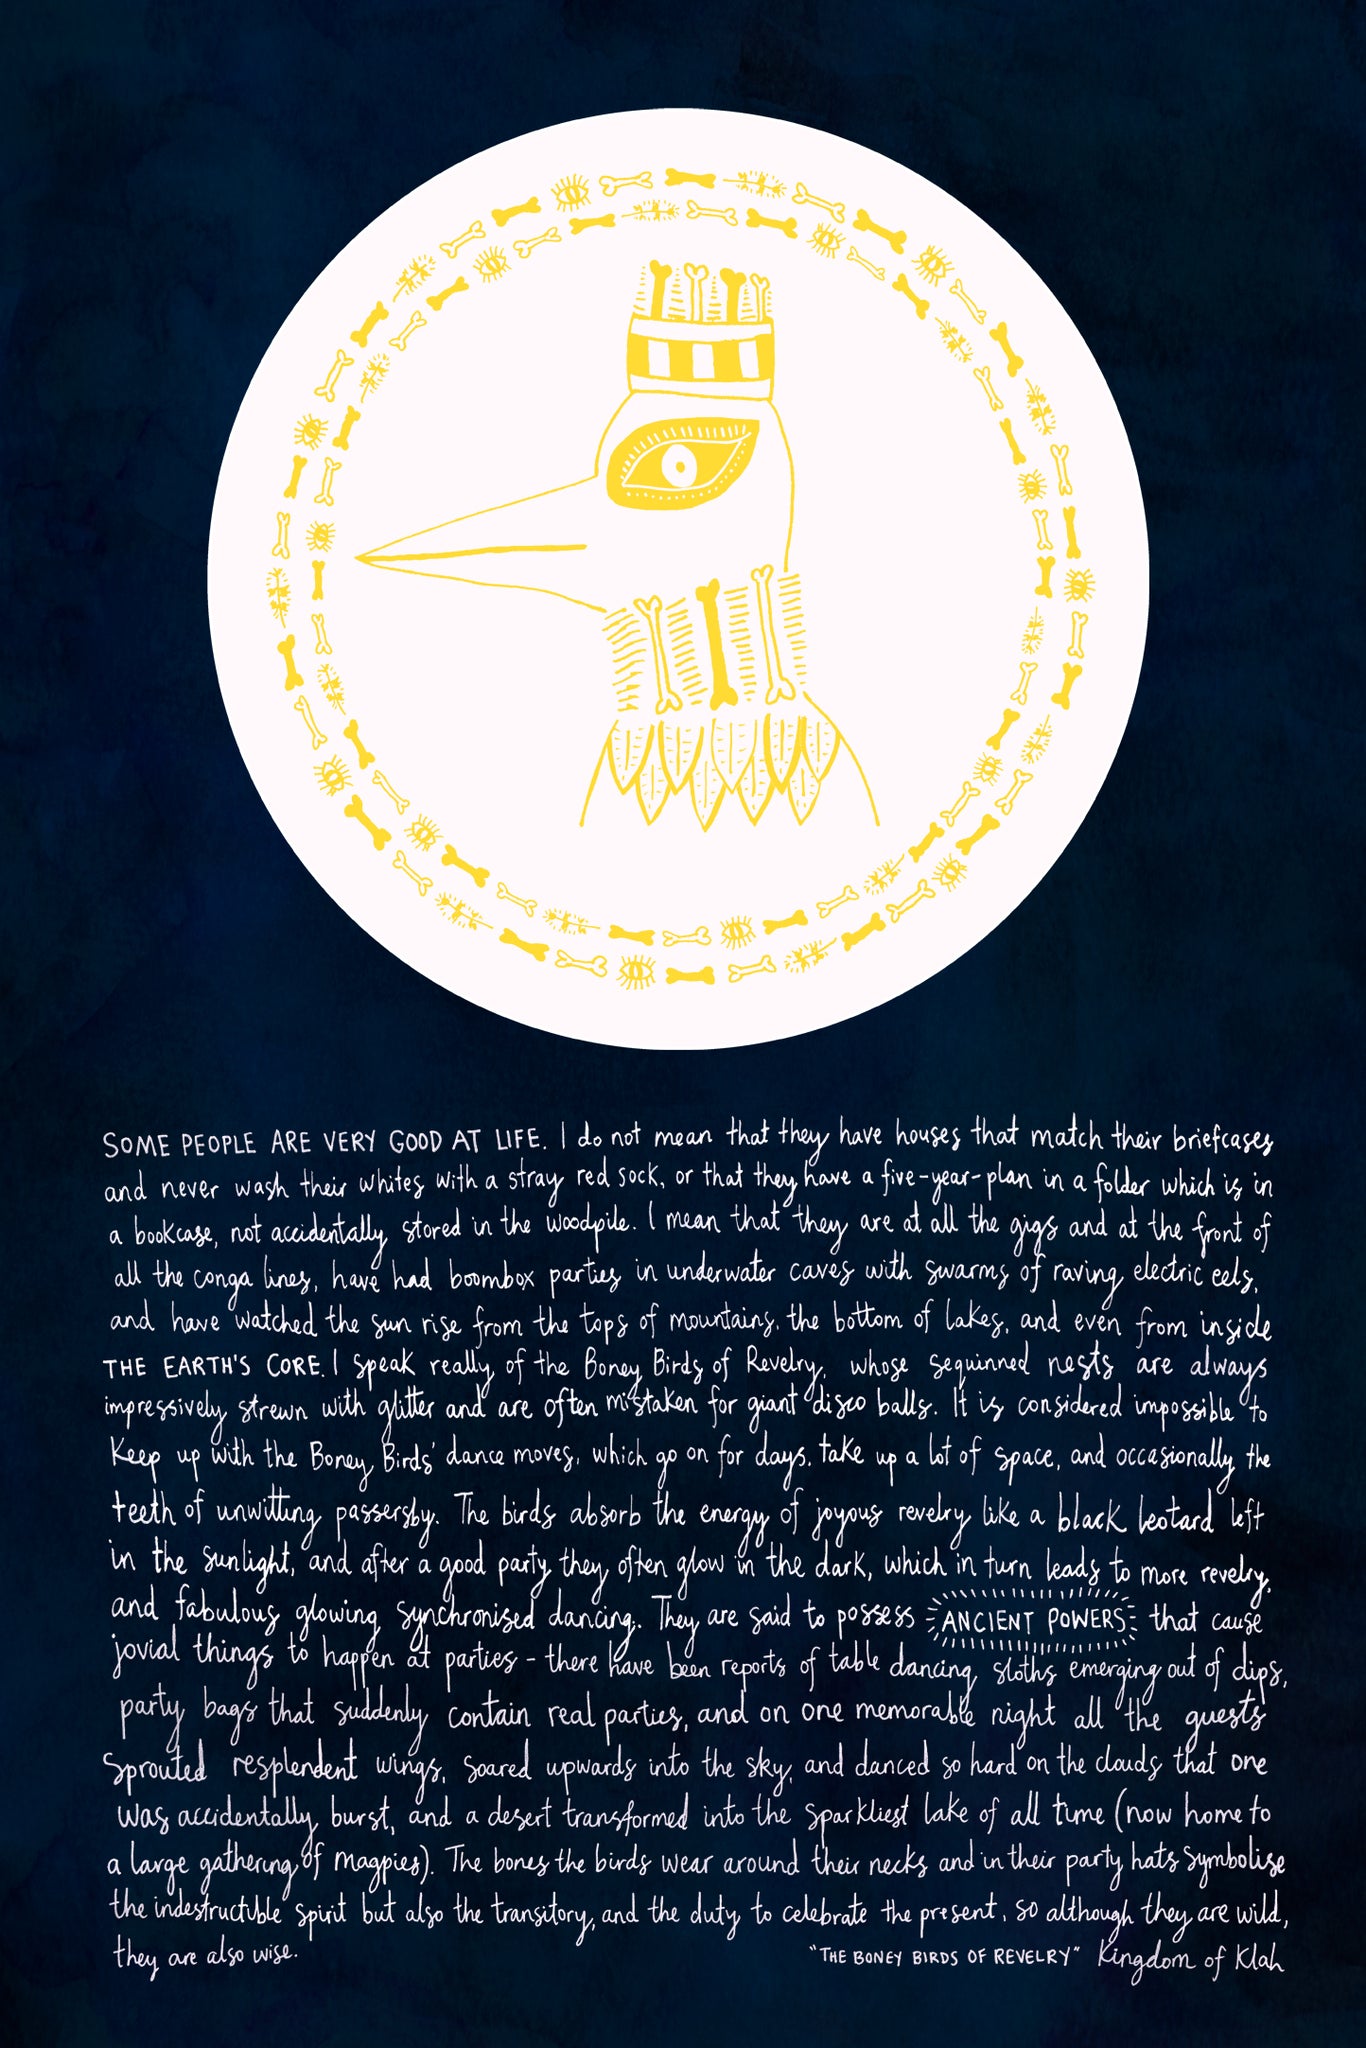 SOME PEOPLE ARE VERY GOOD AT LIFE. I do not mean that they have houses that match their briefcases
and never wash their whites with a stray red sock, or that they have a five-year-plan in a folder which is in
a bookcase, not accidentally stored in the woodpile. I mean that they are at all the gigs and at the front of
all the conga lines, have had boombox parties in underwater caves with swarms of raving electric eels,
and have watched the sun rise from the tops of mountains, the bottom of lakes, and even from inside
THE EARTH'S CORE. I speak really of the Boney Birds of Revelry, whose sequinned nests are always
impressively strewn with glitter and are often mistaken for giant disco balls. It is considered impossible to
keep up with the Boney Birds' dance moves, which go on for days, take up a lot of space, and occasionally the
teeth of unwitting passersby. The birds absorb the energy of joyous revelry like a black leotard left
in the sunlight, and after a good party they often glow in the dark, which in turn leads to more revelry,
and fabulous glowing synchronised dancing. They are said to possess ANCIENT POWERS that cause
jovial things to happen at parties - there have been reports of table dancing sloths emerging out of dips,
party bags that suddenly contain real parties, and on one memorable night all the guests
sprouted resplendent wings, soared upwards into the sky, and danced so hard on the clouds that one
was accidentally burst, and a desert transformed into the sparkliest lake of all time (now home to
a large gathering of magpies). The bones the birds wear around their necks and in their party hats symbolise
the indestructible spirit but also the transitory, and the duty to celebrate the present, so although they are wild,
they are also wise. "THE BONEY BIRDS OF REVELRY" Kingdom of Klah